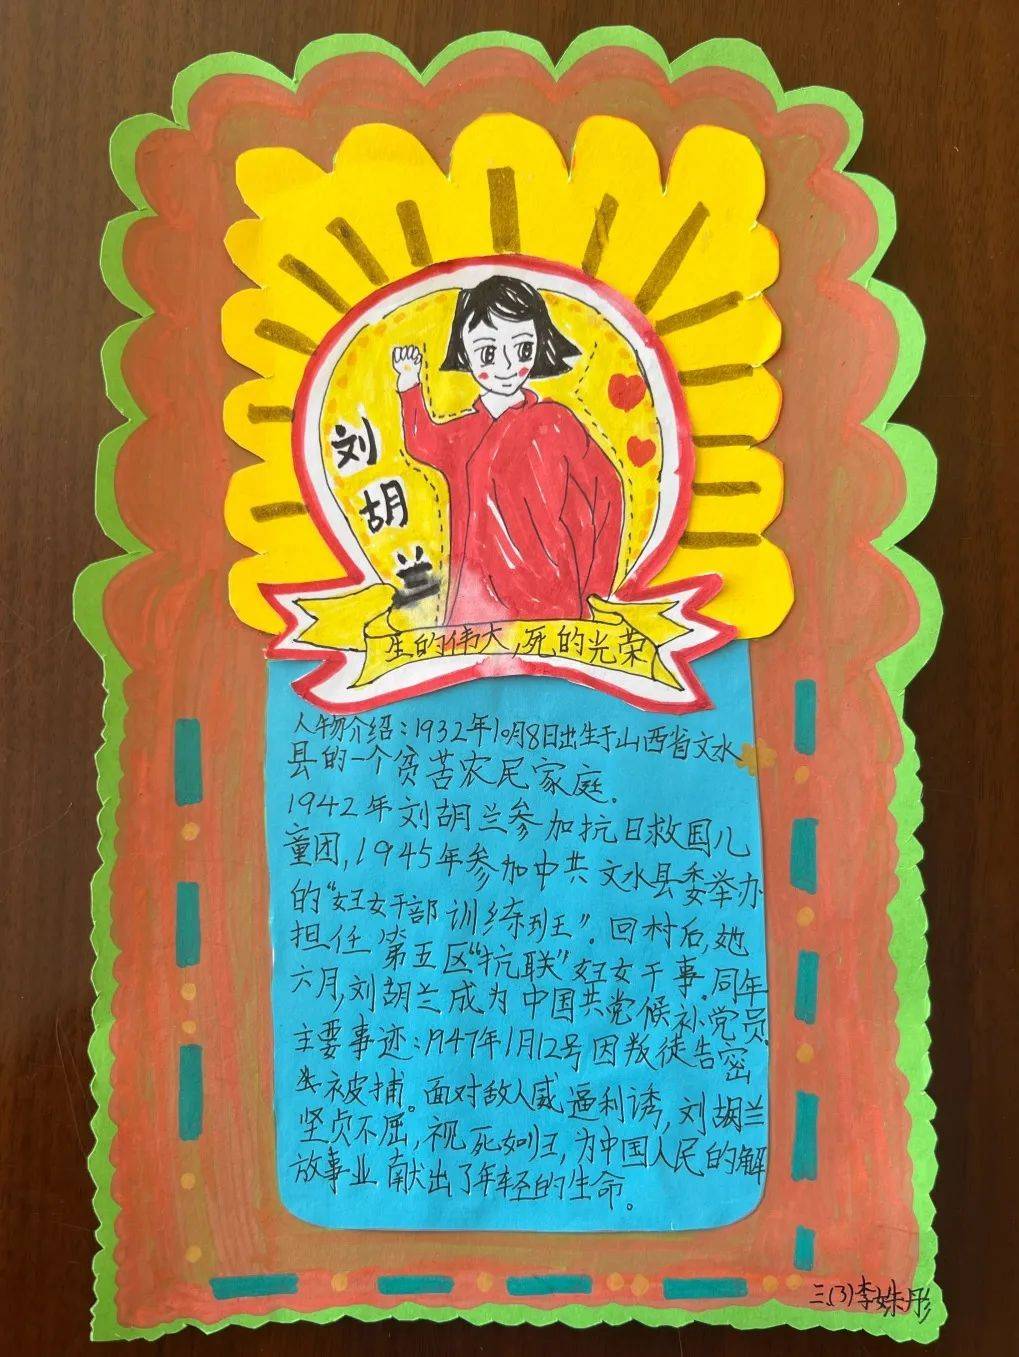 刘胡兰
生的伟大,死的光荣
人物介绍:1932年10月8日出生于山西省文水
县的一个贫苦农民家庭.
1942年刘胡兰参加抗日救国儿
童团,1945年参加中共文水县委举办
的"妇女干部训练班"。回村后,她
担任第五区"抗联"妇女干事.同年
六月,刘胡兰成为中国共党候补党员.
主要事迹:1947年1月12号因叛徒告密
被捕。面对敌人威逼利诱,刘胡兰
坚贞不屈,视死如归,为中国人民的解
放事业献出了年轻的生命。
三(3)李姝彤